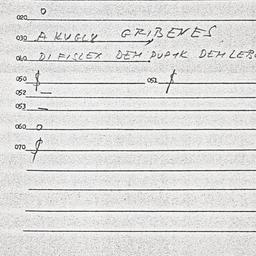 020 0
030 A KUGLY GRIBENES
040 DI FISLEX DEM PUPIK DEM LEB
050 051
052 —
053 —
060 0
070